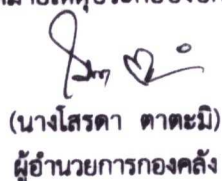 (นางโสรดา ตาตะมิ)
ผู้อำนวยการกองคลัง